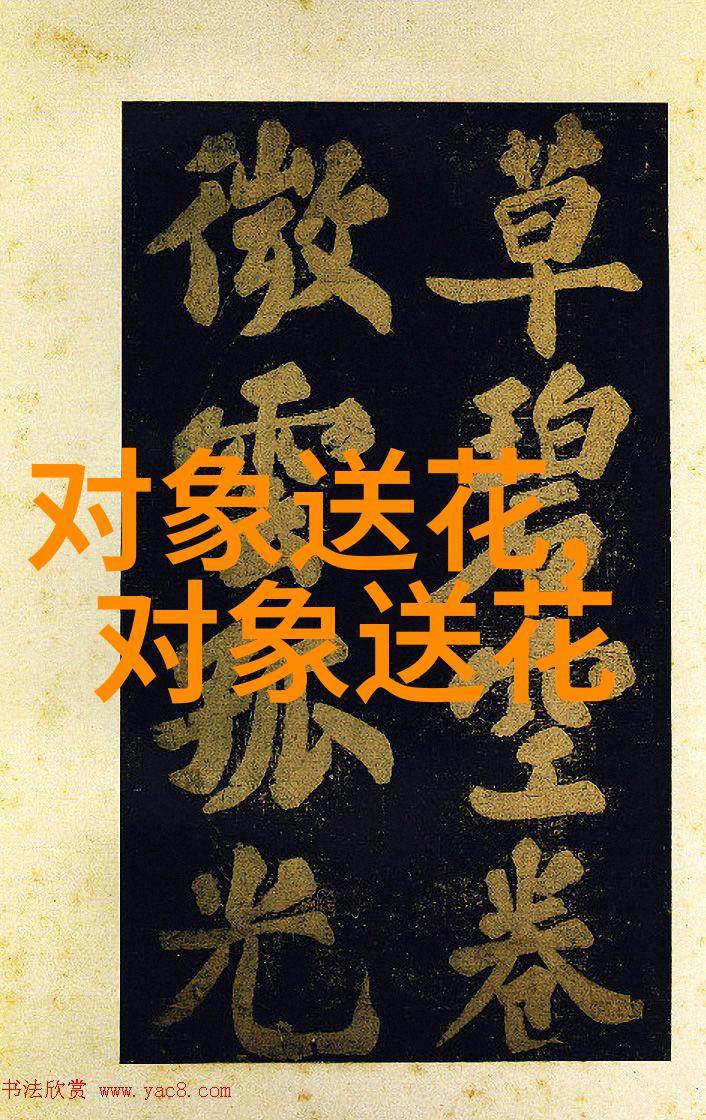 草碧空卷
微雲孤光
对象送花,
对象送花
书法欣赏 www.yac8.com